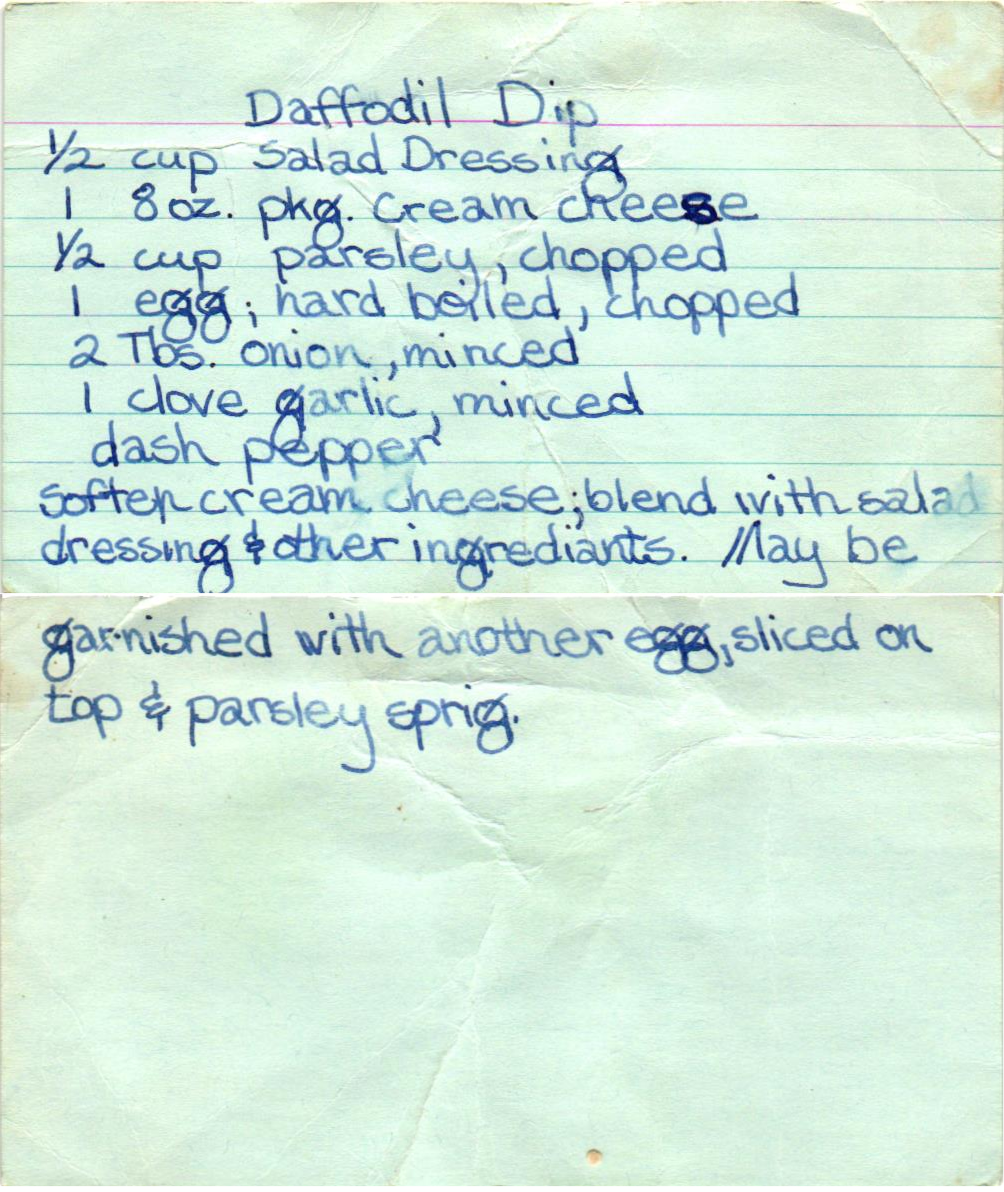 Daffodil Dip
1/2 cup Salad Dressing
1 8 oz. pkg. cream cheese
1/2 cup parsley, chopped
1 egg; hard boiled, chopped
2 Tbs. onion, minced
1 clove garlic, minced
dash pepper
soften cream cheese; blend with salad
dressing & other ingrediants. May be
garnished with another egg, sliced on
top & parsley sprig.